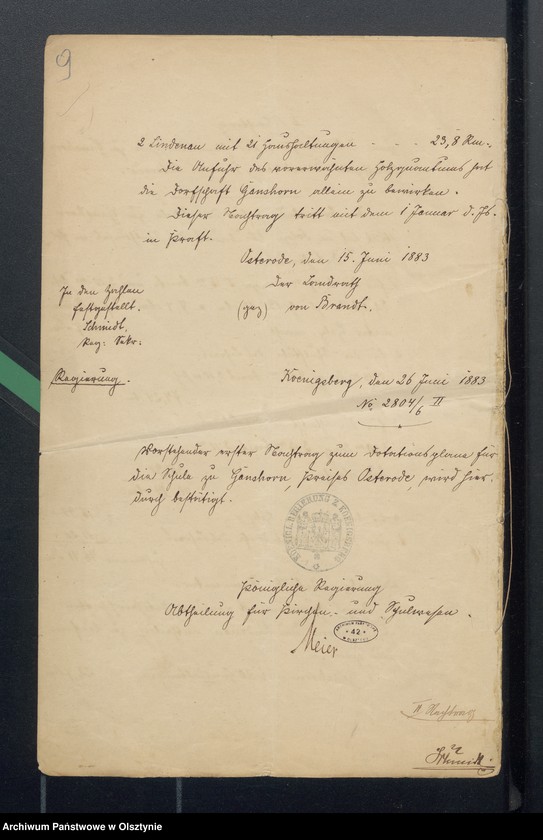 9
2 Lindenau mit 21 Haushaltungen - - - 23,8 Rm.
Die Anfuhr des vorerwähnten Holzquantums hat
die Dorfschaft Ganshorn allein zu bewirken.
Dieser Nachtrag tritt mit dem 1 Januar d. Js.
in Kraft.
Osterode, den 15. Juni 1883
Der Landrath
(gez) von Brandt.
In den Zahlen
festgestellt.
Schmidt.
Reg: Sekr:
Regierung.
Koenigsberg, den 26 Juni 1883
No 2804/6 II
Vorstehender erster Nachtrag zum Dotationsplane für
die Schule zu Ganshorn, Kreises Osterode, wird hier-
durch bestätigt.
KÖNIGL. REGIERUNG Z. KOENIGSBERG
Königliche Regierung
Abtheilung für Kirchen- und Schulwesen.
Meier
42
II Nachtrag
Archiwum Państwowe w Olsztynie